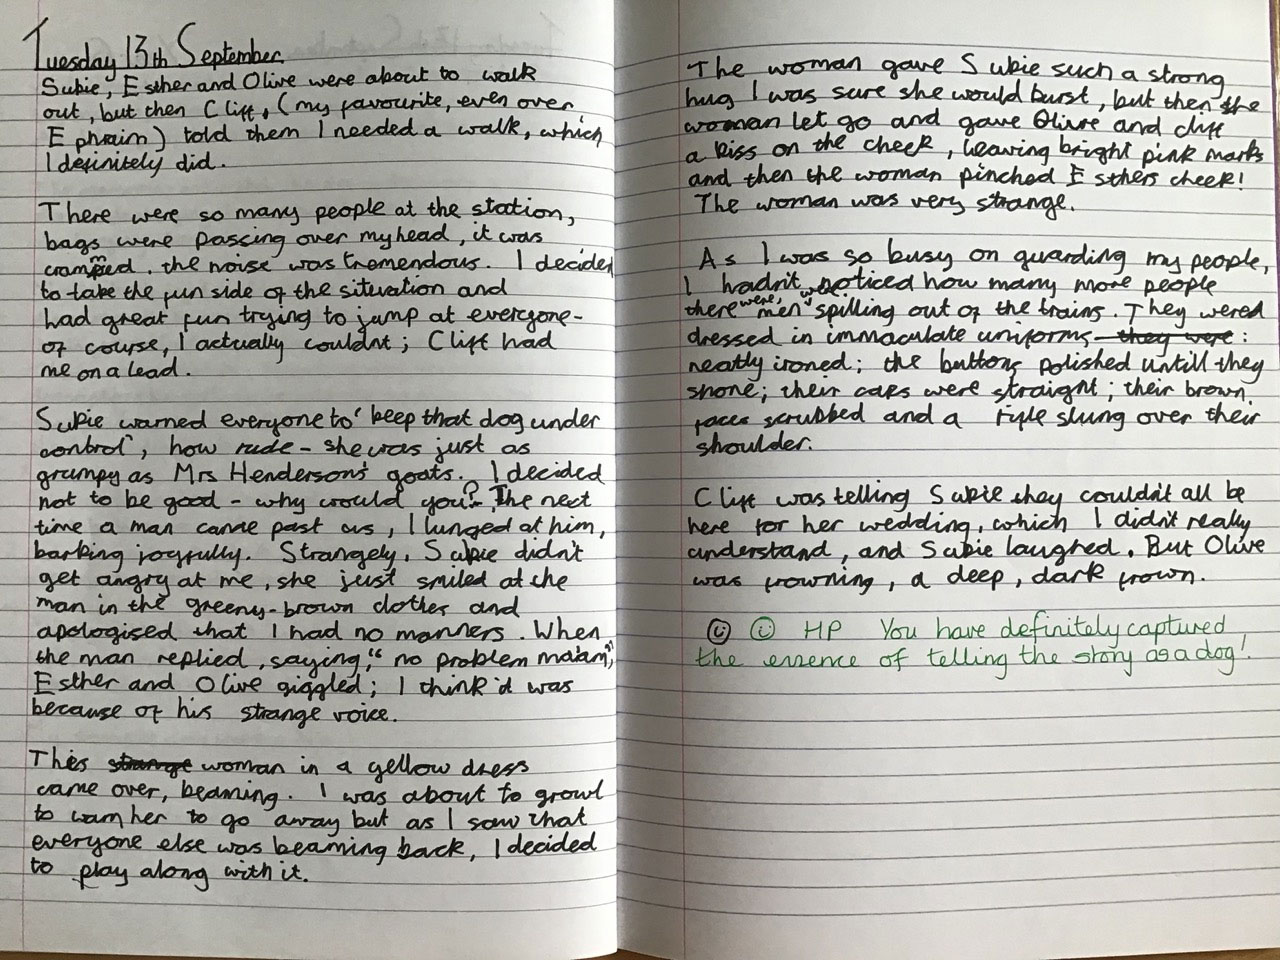 Tuesday 13th September
Sukie, Esther and Olive were about to walk
out, but then Cliff, (my favourite, even over
Ephraim) told them I needed a walk, which
I definitely did.
There were so many people at the station,
bags were passing over my head, it was
crammed. the noise was tremendous. I decided
to take the fun side of the situation and
had great fun trying to jump at everyone-
of course, I actually couldnt; Cliff had
me on a lead.
Sukie warned everyone to 'keep that dog under
control', how rude - she was just as
grumpy as Mrs Henderson's goats. I decided
not to be good - why would you? The next
time a man came past us, I lunged at him,
barking joyfully. Strangely, Sukie didn't
get angry at me, she just smiled at the
man in the greeny-brown clothes and
apologised that I had no manners. When
the man replied, saying, "no problem ma'am",
Esther and Olive giggled; I think it was
because of his strange voice.
This strange woman in a yellow dress
came over, beaming. I was about to growl
to warn her to go away but as I saw that
everyone else was beaming back, I decided
to play along with it.
The woman gave Sukie such a strong
hug I was sure she would burst, but then the
woman let go and gave Olive and cliff
a kiss on the cheek, leaving bright pink marks
and then the woman pinched Esthers cheek!
The woman was very strange.
As I was so busy on guarding my people,
I hadn't noticed how many more people
there were, men were spilling out of the trains. They wered
dressed in immaculate uniforms they were:
neatly ironed; the buttons polished untill they
shone; their caps were straight; their brown
faces scrubbed and a rifle slung over their
shoulder.
Cliff was telling Sukie they couldn't all be
here for her wedding, which I didn't really
understand, and Sukie laughed. But Olive
was frowning, a deep, dark frown.
HP You have definitely captured
the essence of telling the story as a dog!